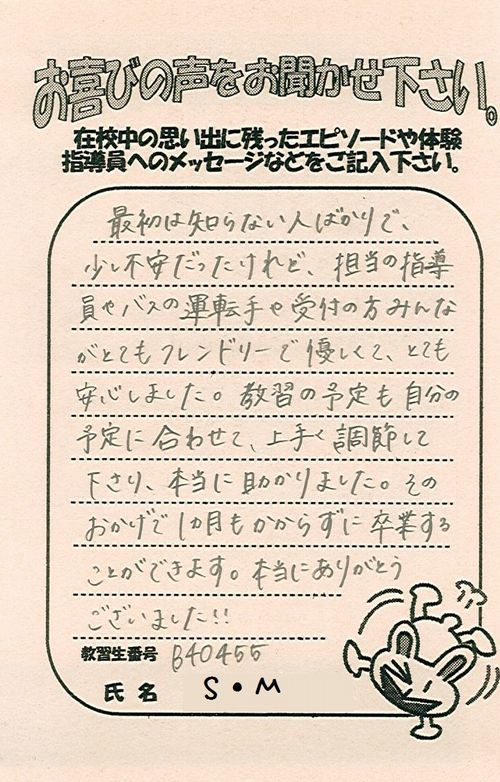 お喜びの声をお聞かせ下さい。
在校中の思い出に残ったエピソードや体験
指導員へのメッセージなどをご記入下さい。
最初は知らない人ばかりで、
少し不安だったけれど、担当の指導
員やバスの運転手や受付の方みんな
がとてもフレンドリーで優しくて、とても
安心しました。教習の予定も自分の
予定に合わせて、上手く調節して
下さり、本当に助かりました。その
おかげで1カ月もかからずに卒業する
ことができます。本当にありがとう
ございました!!
教習生番号 B40455
氏名 S・M